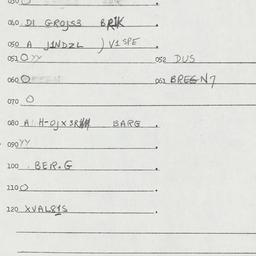 040 DI GROJSS BRIK
050 A JINDZL ) VISPE
051 O YY 052 DUS
060 O 061 BREGN7
070 O
080 A H-OJX3R BARG
090 YY
100 BER.G
110 O
120 XVALQ1S